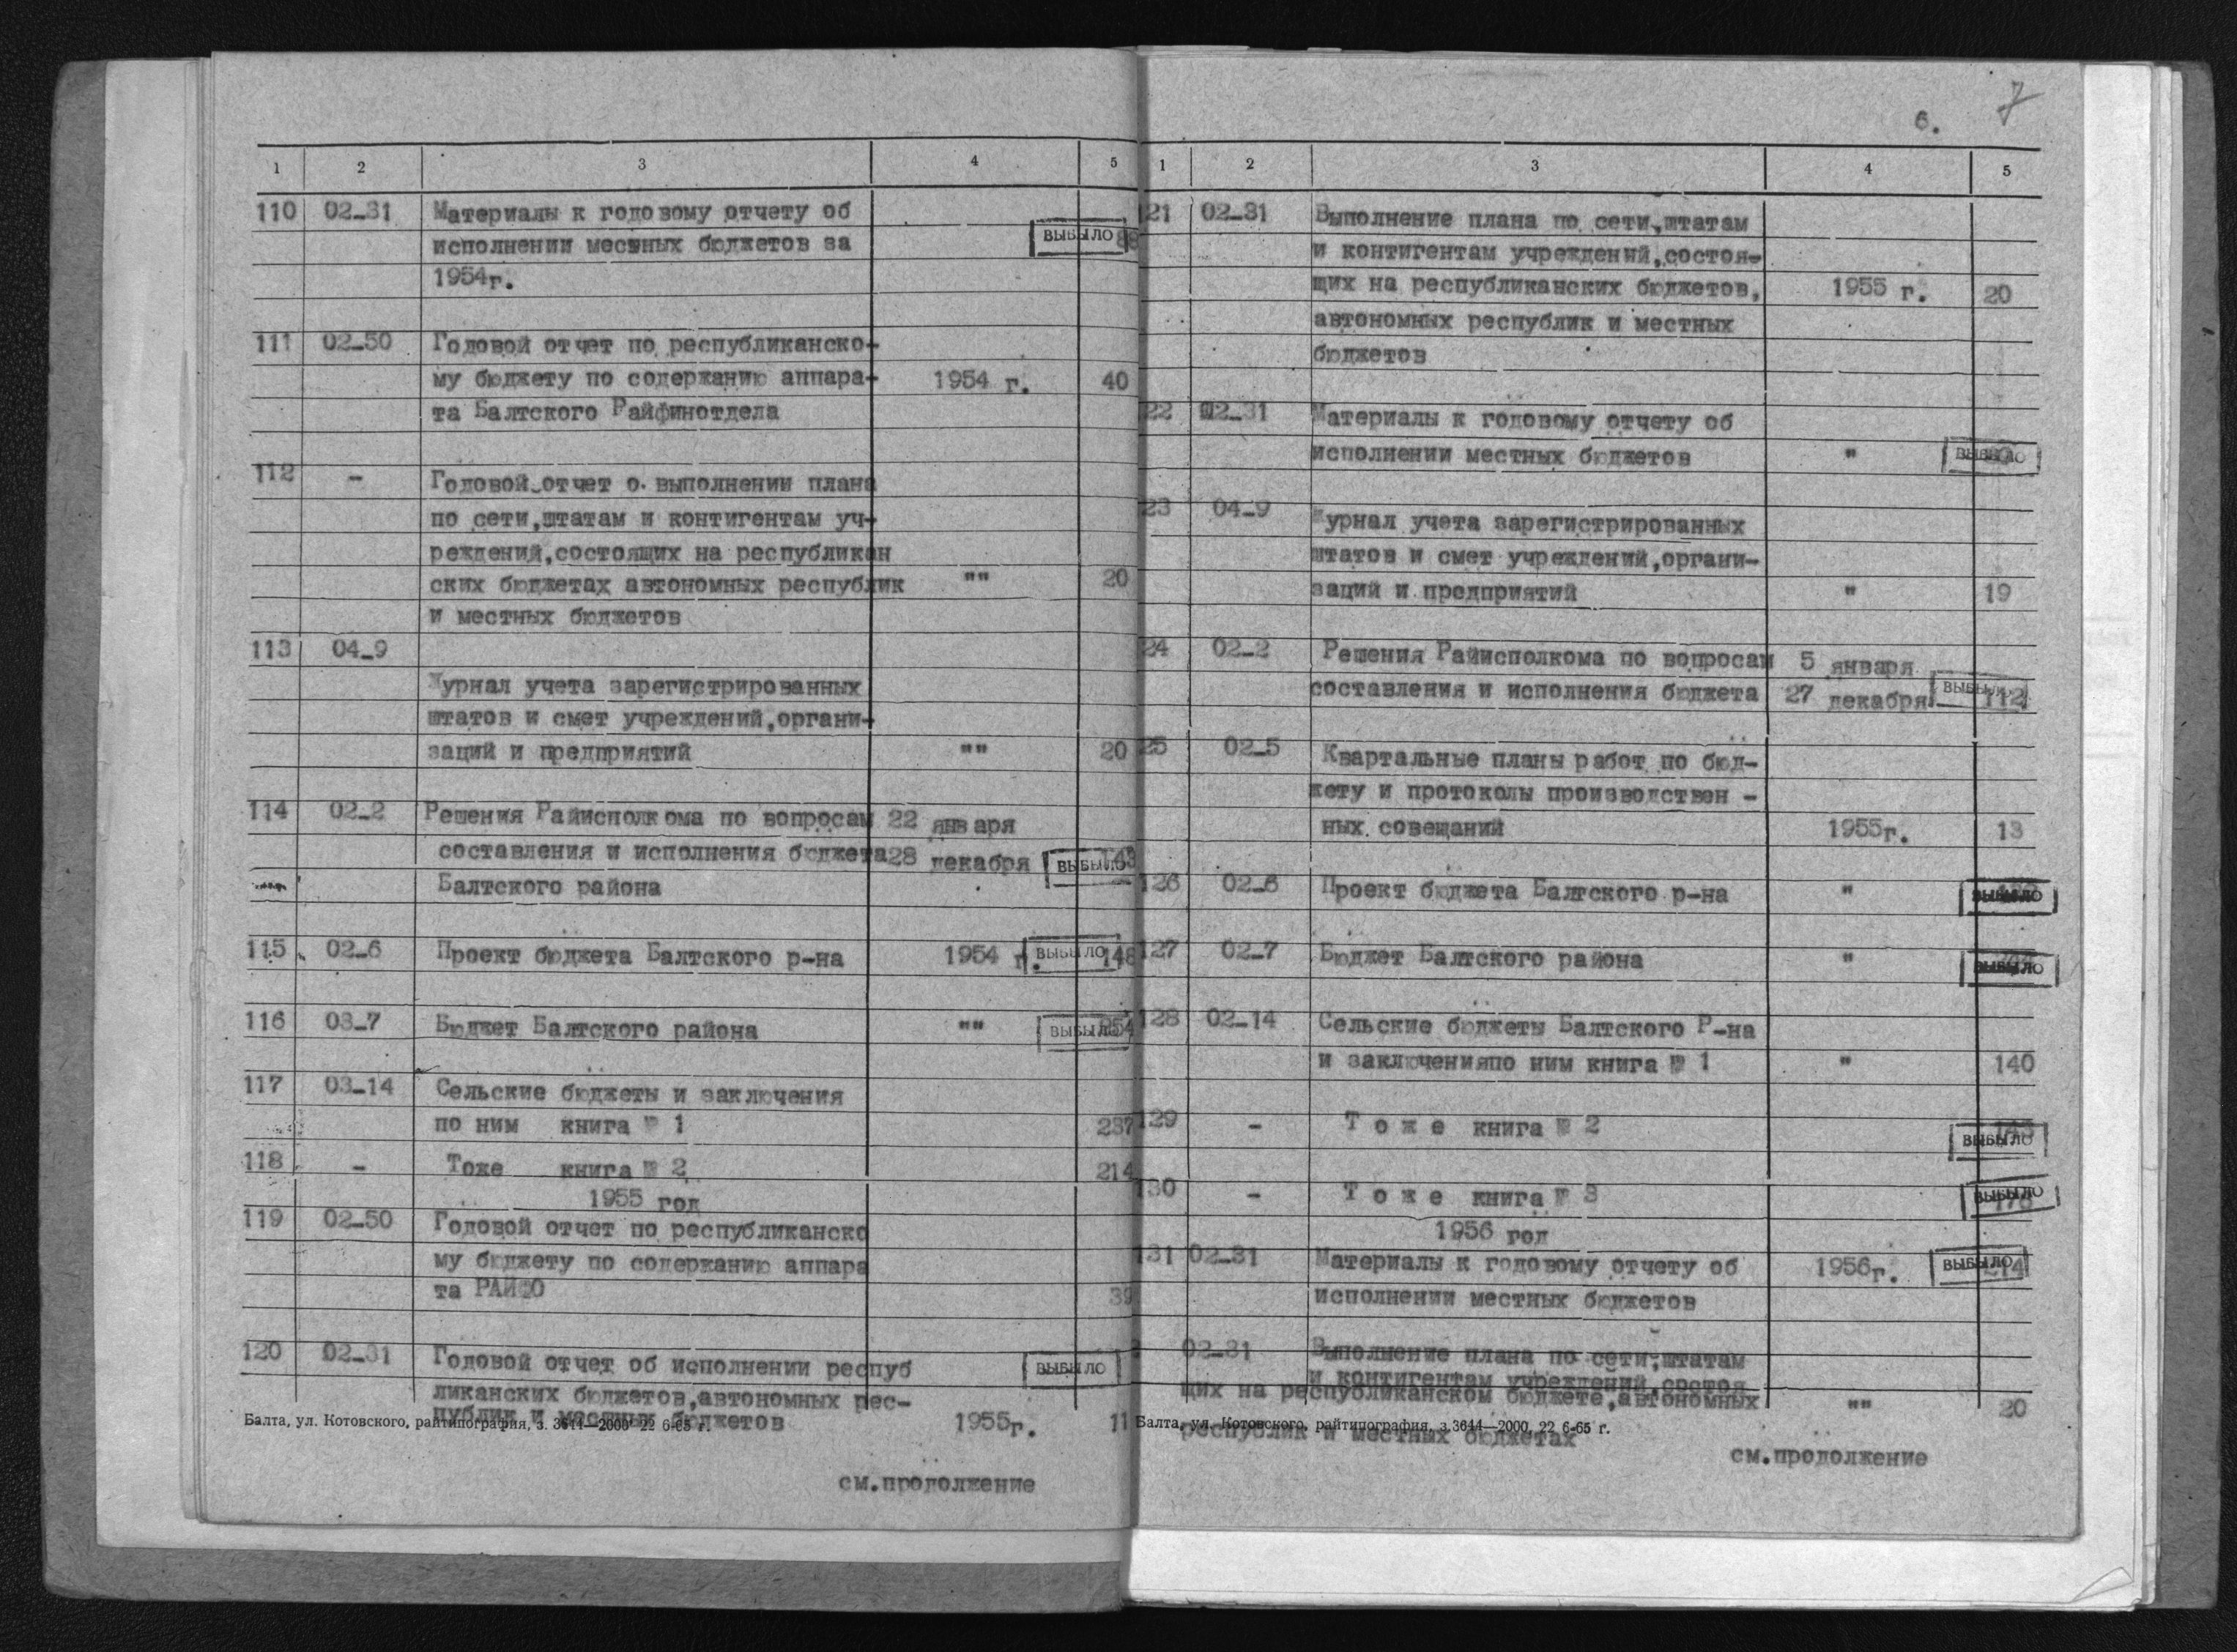 1 2 3 4 5
110 02-31 Материалы к годовому отчету об
исполнении местных бюджетов за ВЫБЫЛО
1954г.
111 02-50 Годовой отчет по республиканско-
му бюджету по содержанию аппара- 1954 г. 40
та Балтского Райфинотдела
112 - Годовой отчет о выполнении плана
по сети,штатам и контигентам уч-
реждений,состоящих на республикан
ских бюджетах автономных республик "" 20
и местных бюджетов
113 04-9
Журнал учета зарегистрированных
штатов и смет учреждений,органи-
заций и предприятий "" 20
114 02-2 Решения Райисполкома по вопросам 22 января
составления и исполнения бюджета 28 декабря ВЫБЫЛО 143
Балтского района
115 02-6 Проект бюджета Балтского р-на 1954 г. ВЫБЫЛО 148
116 03-7 Бюджет Балтского района "" ВЫБЫЛО 254
117 03-14 Сельские бюджеты и заключения
по ним книга № 1 237
118 - Тоже книга № 2 214
1955 год
119 02-50 Годовой отчет по республиканско
му бюджету по содержанию аппара
та РАЙФО 39
120 02-31 Годовой отчет об исполнении респуб ВЫБЫЛО
ликанских бюджетов,автономных рес-
публик и местных бюджетов 1955г. 11
Балта, ул. Котовского, райтипография, з. 3644—2000 22 6-65 г.
см.продолжение
6. 7
1 2 3 4 5
121 02-31 Выполнение плана по сети,штатам
и контигентам учреждений,состоя-
щих на республиканских бюджетов, 1955 г. 20
автономных республик и местных
бюджетов
22 02-31 Материалы к годовому отчету об
исполнении местных бюджетов " ВЫБЫЛО
23 04-9 Журнал учета зарегистрированных
штатов и смет учреждений,органи-
заций и предприятий " 19
24 02-2 Решения Райисполкома по вопросам 5 января
составления и исполнения бюджета 27 декабря ВЫБЫЛО 112
25 02-5 Квартальные планы работ по бюд-
жету и протоколы производствен -
ных совещаний 1955г. 13
126 02-6 Проект бюджета Балтского р-на " ВЫБЫЛО
127 02-7 Бюджет Балтского района " ВЫБЫЛО
128 02-14 Сельские бюджеты Балтского Р-на
и заключенияпо ним книга № 1 " 140
129 - Т о ж е книга № 2 ВЫБЫЛО
130 - Т о ж е книга № 3 ВЫБЫЛО
1956 год
131 02-31 Материалы к годовому отчету об 1956г. ВЫБЫЛО 214
исполнении местных бюджетов
02-31 Выполнение плана по сети,штатам
и контигентам учреждений,состоя
щих на республиканском бюджете,автономных "" 20
республик и местных бюджетах
Балта, ул. Котовского, райтипография, з.3644—2000, 22 6-65 г.
см.продолжение